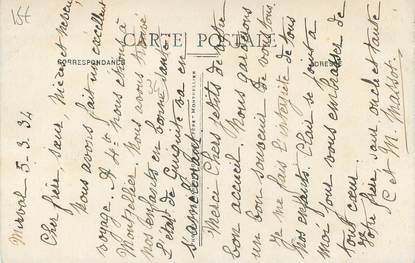 15€
CARTE POSTALE
CORRESPONDANCE
ADRESSE
Mirval 5.3.34
Cher frère, sœur, nièce et neveu
Nous avons fait un excellent
voyage. A 4h nous étions à
Montpellier. Nous avons trouvé
nos enfants en bonne santé
L'état de va en
s'améliorant.
Merci Chers petits de votre
bon accueil. Nous garderons
un bon souvenir de vous tous
Je me fais l'interprète de tous
nos enfants. Clau se joint à
moi pour vous embrasser de
tout cœur.
Votre frère sœur oncle et tante
C et M. Massot.